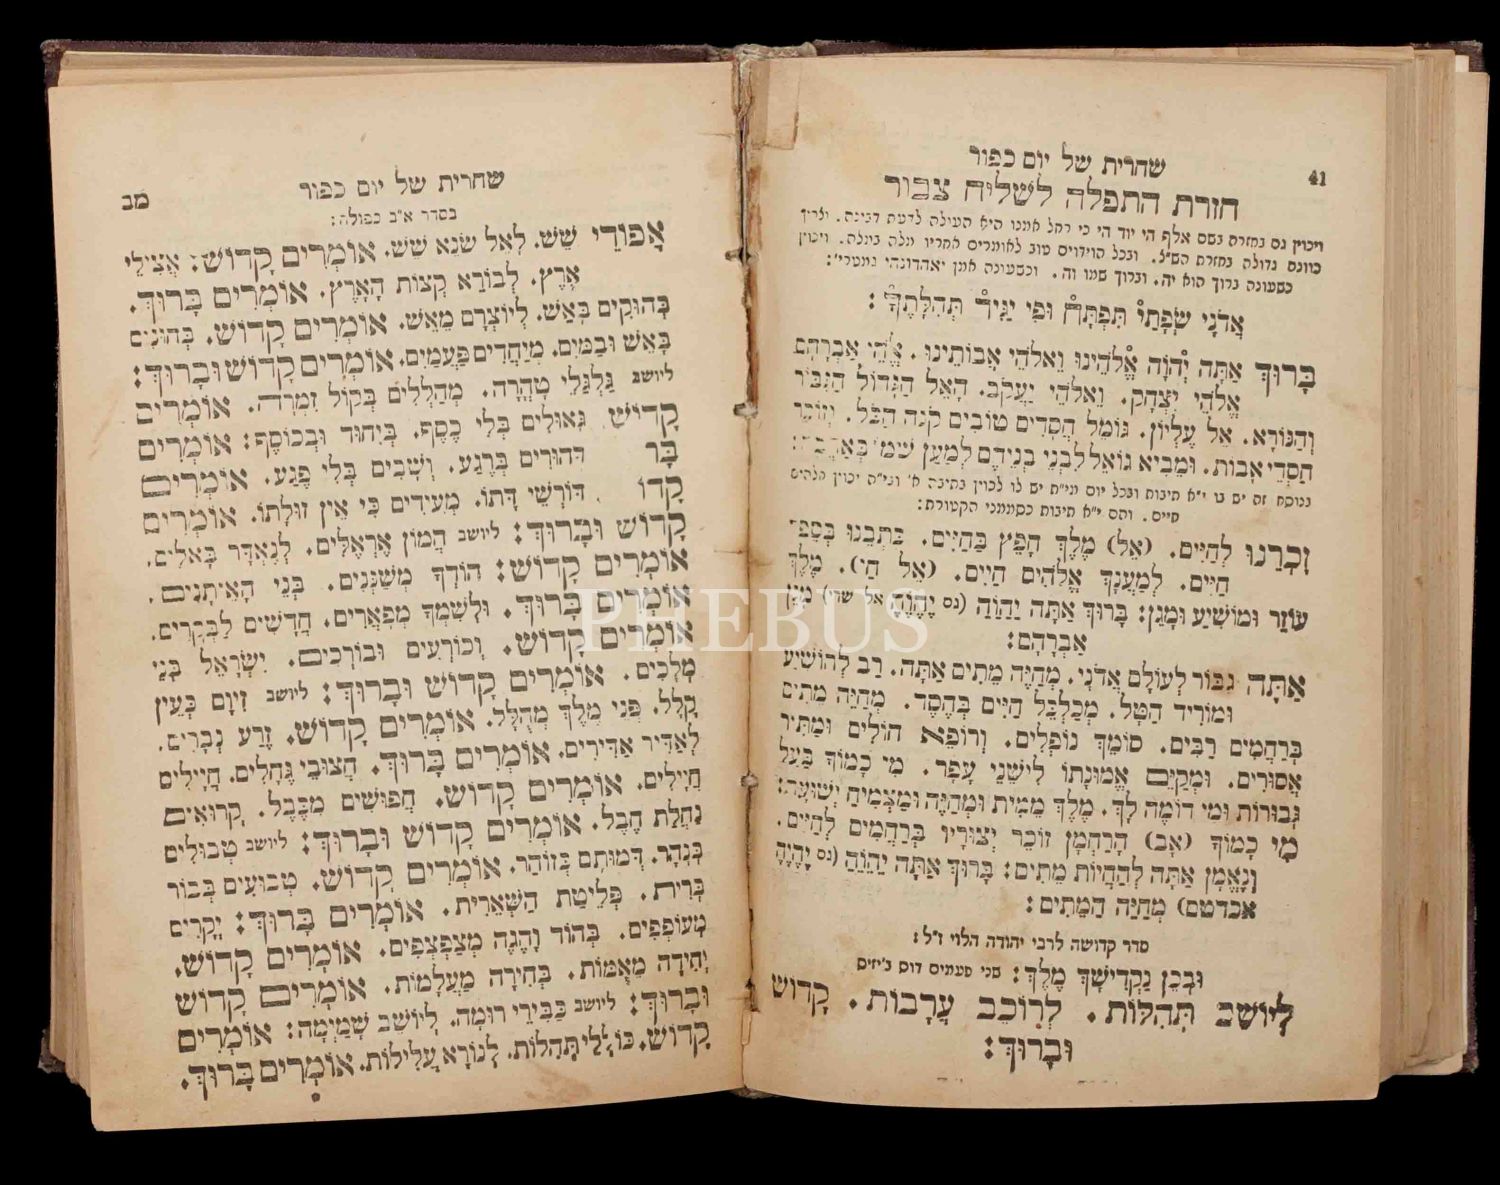 41
שחרית של יום כפור
חזרת התפלה לשליח צבור
אֲדֹנָי שְׂפָתַי תִּפְתָּח וּפִי יַגִּיד תְּהִלָּתֶךָ:
בָּרוּךְ אַתָּה יְהֹוָה אֱלֹהֵינוּ וֵאלֹהֵי אֲבוֹתֵינוּ. אֱלֹהֵי אַבְרָהָם
אֱלֹהֵי יִצְחָק. וֵאלֹהֵי יַעֲקֹב. הָאֵל הַגָּדוֹל הַגִּבּוֹר
וְהַנּוֹרָא. אֵל עֶלְיוֹן. גּוֹמֵל חֲסָדִים טוֹבִים קֹנֵה הַכֹּל. וְזוֹכֵר
חַסְדֵי אָבוֹת. וּמֵבִיא גוֹאֵל לִבְנֵי בְנֵיהֶם לְמַעַן שְׁמוֹ בְּאַהֲבָה:
זָכְרֵנוּ לְחַיִּים. (אֵל) מֶלֶךְ חָפֵץ בַּחַיִּים. כָּתְבֵנוּ בְּסֵפֶר
חַיִּים. לְמַעֲנָךְ אֱלֹהִים חַיִּים. (אֵל חַי). מֶלֶךְ
עוֹזֵר וּמוֹשִׁיעַ וּמָגֵן: בָּרוּךְ אַתָּה יַהַוַהַ
אַבְרָהָם:
אַתָּה גִּבּוֹר לְעוֹלָם אֲדֹנָי. מְחַיֶּה מֵתִים אַתָּה. רַב לְהוֹשִׁיעַ
וּמוֹרִיד הַטָּל. מְכַלְכֵּל חַיִּים בְּחֶסֶד. מְחַיֶּה מֵתִים
בְּרַחֲמִים רַבִּים. סוֹמֵךְ נוֹפְלִים. וְרוֹפֵא חוֹלִים וּמַתִּיר
אֲסוּרִים. וּמְקַיֵּם אֱמוּנָתוֹ לִישֵׁנֵי עָפָר. מִי כָמוֹךָ בַּעַל
גְּבוּרוֹת וּמִי דוֹמֶה לָּךְ. מֶלֶךְ מֵמִית וּמְחַיֶּה וּמַצְמִיחַ יְשׁוּעָה:
מִי כָמוֹךָ (אָב) הָרַחְמָן זוֹכֵר יְצוּרָיו בְּרַחֲמִים לְחַיִּים.
וְנֶאֱמָן אַתָּה לְהַחֲיוֹת מֵתִים: בָּרוּךְ אַתָּה
אכדטם) מְחַיֵּה הַמֵּתִים:
סדר קדושה לרבי יהודה הלוי ז"ל:
וּבְכֵן נַקְדִּישָׁךְ מֶלֶךְ:
לְיוֹשֵׁב תְּהִלּוֹת. לְרוֹכֵב עֲרָבוֹת. קָדוֹשׁ
וּבָרוּךְ:
מב
שחרית של יום כפור
בסדר א"ב כפולה:
אֲפוּדֵי שֵׁשׁ. לְאֵל שֹׂנֵא שֵׁשׁ. אוֹמְרִים קָדוֹשׁ: אֲצִילֵי
אֶרֶץ. לְבוֹרֵא קְצוֹת הָאָרֶץ. אוֹמְרִים בָּרוּךְ.
בְּהוּקִים בָּאֵשׁ. לְיוֹצְרָם מֵאֵשׁ. אוֹמְרִים קָדוֹשׁ. בְּחוּנִים
בָּאֵשׁ וּבַמַּיִם. מְיַחֲדִים פַּעֲמַיִם. אוֹמְרִים קָדוֹשׁ וּבָרוּךְ:
ליושב גַּלְגַּלֵּי טָהֳרָה. מְהַלְלִים בְּקוֹל זִמְרָה. אוֹמְרִים
קָדוֹשׁ גְּאוּלִים בְּלִי כֶסֶף. בְּיִחוּד וּבְכוֹסֶף: אוֹמְרִים
בָּר דּוֹהֲרִים בְּרֶגַע. וְשָׁבִים בְּלִי פֶגַע. אוֹמְרִים
קָדוֹ דּוֹרְשֵׁי דָתוֹ. מְעִידִים כִּי אֵין זוּלָתוֹ. אוֹמְרִים
קָדוֹשׁ וּבָרוּךְ: ליושב הֲמוֹן אֶרְאֶלִּים. לְנֶאְדָּר בָּאֵלִים.
אוֹמְרִים קָדוֹשׁ: הוֹדְךָ מְשַׁנְּנִים. בְּנֵי הָאֵיתָנִים.
אוֹמְרִים בָּרוּךְ. וּלְשִׁמְךָ מְפָאֲרִים. חֲדָשִׁים לַבְּקָרִים.
אוֹמְרִים קָדוֹשׁ. וְכוֹרְעִים וּבוֹרְכִים. יִשְׂרָאֵל בְּנֵי
מְלָכִים. אוֹמְרִים קָדוֹשׁ וּבָרוּךְ: ליושב זִיוָם כְּעֵין
קָלָל. פְּנֵי מֶלֶךְ מְהֻלָּל. אוֹמְרִים קָדוֹשׁ. זֶרַע גְּבָרִים.
לְאַדִּיר אַדִּירִים. אוֹמְרִים בָּרוּךְ. חֲצוּבֵי גֶחָלִים. חֲיָילִים
חֲיָילִים. אוֹמְרִים קָדוֹשׁ. חֲפוּשִׁים מִכֶּבֶל. קְרוּאִים
נַחֲלַת חֶבֶל. אוֹמְרִים קָדוֹשׁ וּבָרוּךְ: ליושב טְבוּלִים
בְּנָהָר. דְּמוּתָם כְּזוֹהַר. אוֹמְרִים קָדוֹשׁ. טְבוּעִים בְּבוֹר
בְּרִית. פְּלֵיטַת הַשְּׁאֵרִית. אוֹמְרִים בָּרוּךְ: יְקָרִים
מְעוֹפְפִים. בְּהוֹד וָהֶגֶה מְצַפְצְפִים. אוֹמְרִים קָדוֹשׁ.
יְחִידָה מֵאֻמּוֹת. בְּחִירָה מֵעֲלָמוֹת. אוֹמְרִים קָדוֹשׁ
וּבָרוּךְ: ליושב כַּבִּירֵי רוּמָה. לְיוֹשֵׁב שָׁמַיְמָה: אוֹמְרִים
קָדוֹשׁ. כּוֹלְלֵי תְּהִלּוֹת. לְנוֹרָא עֲלִילוֹת. אוֹמְרִים בָּרוּךְ.
PHEBUS